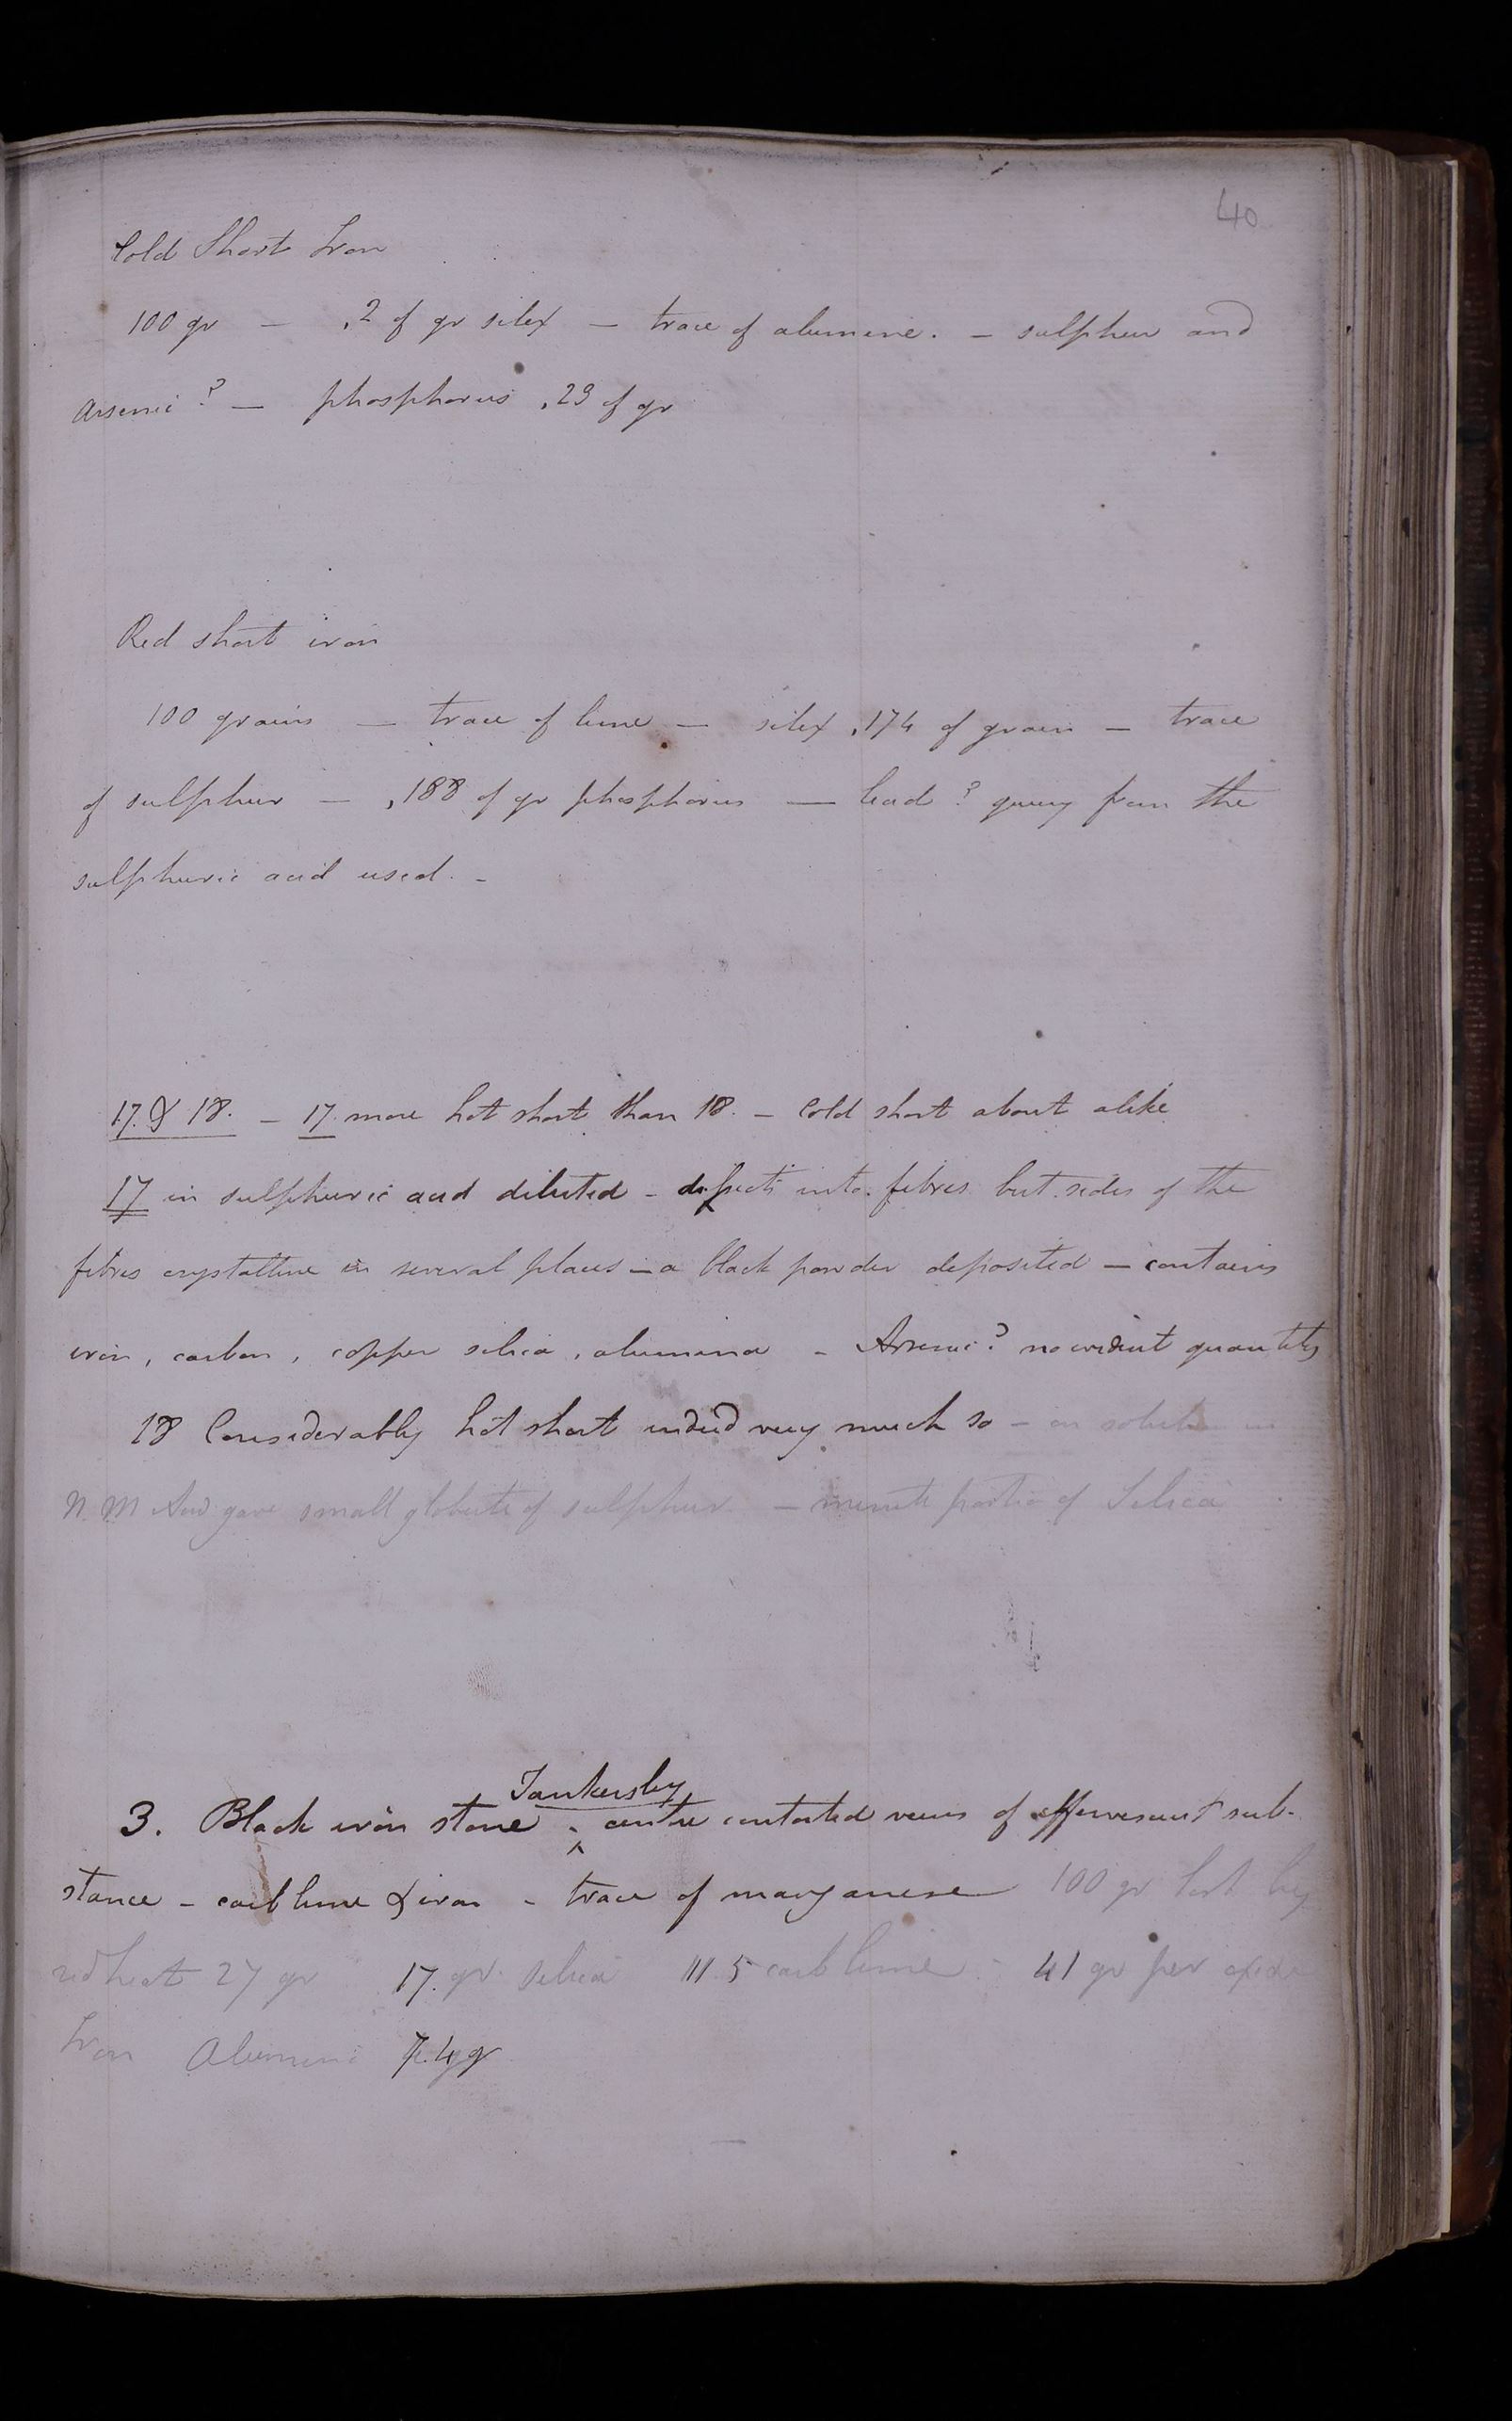 40
Cold Short Iron
100 gr — .2 of gr silex — trace of alumine. — sulphur and
Arsenic? — phosphorus .23 of gr
Red short iron
100 grains — trace of lime — silex .174 of grain — trace
of sulphur — .188 of gr phosphorus — lead? query from the
sulphuric acid used. -
17. & 18. - 17. more hot short than 18. - Cold short about alike
17 in sulphuric acid diluted - dissects into fibres but sides of the
fibres crystalline in several places - a black powder deposited - contains
iron, carbon, copper silica, alumina - Arsenic? no evident quantity
18 Considerably hot short indeed very much so - on solution in
N. M Acid gave small globule of sulphur - minute portion of Silica
Tankersley
3. Black iron stone - centre contorted veins of effervescent sub-
stance - carb lime & iron - trace of manganese 100 gr lost by
red heat 27 gr 17. gr. silica 11.5 carb lime - 41 gr per oxide
Iron Alumine 7.4 gr